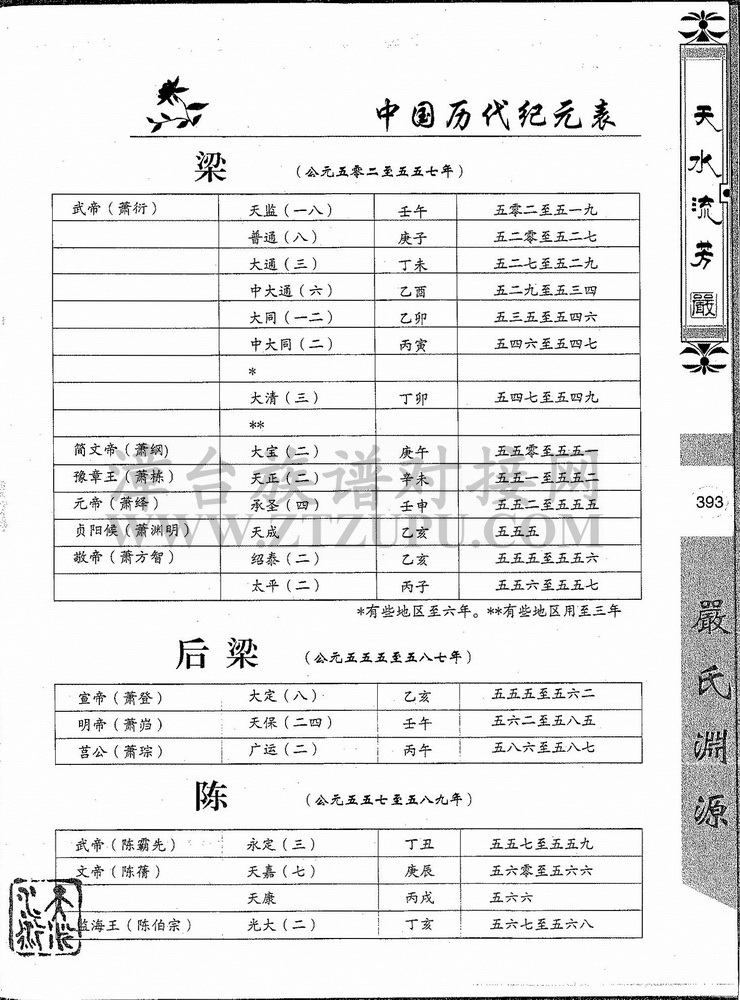 中国历代纪元表
梁 (公元五零二至五五七年)
武帝(萧衍) 天监(一八) 壬午 五零二至五一九
普通(八) 庚子 五二零至五二七
大通(三) 丁未 五二七至五二九
中大通(六) 乙酉 五二九至五三四
大同(一二) 乙卯 五三五至五四六
中大同(二) 丙寅 五四六至五四七
*
大清(三) 丁卯 五四七至五四九
**
简文帝(萧纲) 大宝(二) 庚午 五五零至五五一
豫章王(萧栋) 天正(二) 辛未 五五一至五五二
元帝(萧绎) 承圣(四) 壬申 五五二至五五五
贞阳侯(萧渊明) 天成 乙亥 五五五
敬帝(萧方智) 绍泰(二) 乙亥 五五五至五五六
太平(二) 丙子 五五六至五五七
*有些地区至六年。**有些地区用至三年
后梁 (公元五五五至五八七年)
宣帝(萧登) 大定(八) 乙亥 五五五至五六二
明帝(萧岿) 天保(二四) 壬午 五六二至五八五
莒公(萧琮) 广运(二) 丙午 五八六至五八七
陈 (公元五五七至五八九年)
武帝(陈霸先) 永定(三) 丁丑 五五七至五五九
文帝(陈蒨) 天嘉(七) 庚辰 五六零至五六六
天康 丙戌 五六六
监海王(陈伯宗) 光大(二) 丁亥 五六七至五六八
天水流芳
嚴
393
嚴氏淵源
港台族谱对接网
WWW.ZTZUPU.COM